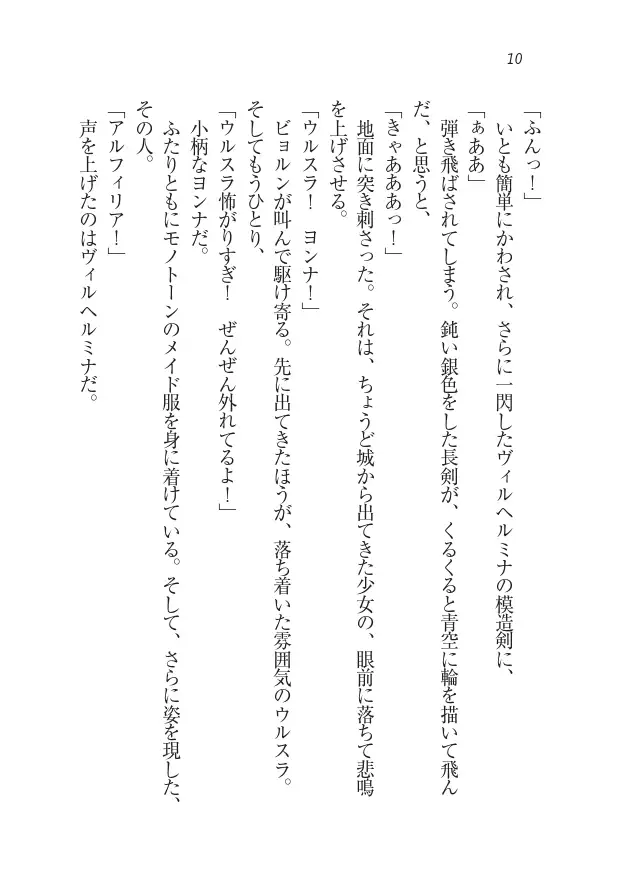 10
「ふんっ！」
いとも簡単にかわされ、さらに一閃したヴィルヘルミナの模造剣に、
「ぁああ」
弾き飛ばされてしまう。鈍い銀色をした長剣が、くるくると青空に輪を描いて飛ん
だ、と思うと、
「きゃあああっ！」
地面に突き刺さった。それは、ちょうど城から出てきた少女の、眼前に落ちて悲鳴
を上げさせる。
「ウルスラ！　ヨンナ！」
ビョルンが叫んで駆け寄る。先に出てきたほうが、落ち着いた雰囲気のウルスラ。
そしてもうひとり、
「ウルスラ怖がりすぎ！　ぜんぜん外れてるよ！」
小柄なヨンナだ。
ふたりともにモノトーンのメイド服を身に着けている。そして、さらに姿を現した、
その人。
「アルフィリア！」
声を上げたのはヴィルヘルミナだ。